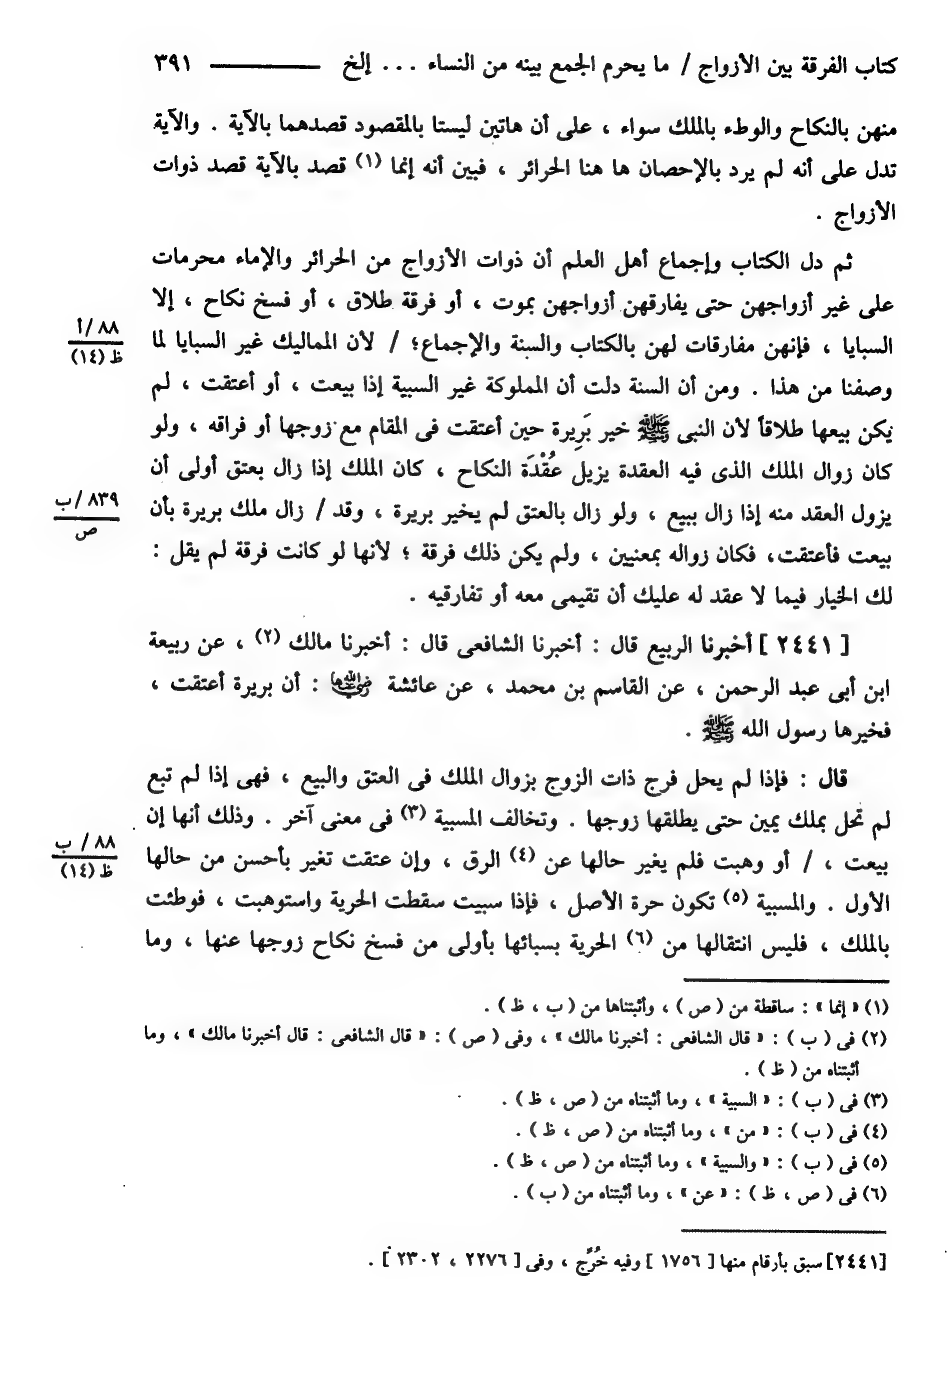 كتاب الفرقة بين الأزواج / ما يحرم الجمع بينه من النساء ... إلخ ـــــــ ٣٩١
منهن بالنكاح والوطء بالملك سواء ، على أن هاتين ليستا بالمقصود قصدهما بالآية . والآية
تدل على أنه لم يرد بالإحصان ها هنا الحرائر ، فبين أنه إنما (١) قصد بالآية قصد ذوات
الأزواج .
ثم دل الكتاب وإجماع أهل العلم أن ذوات الأزواج من الحرائر والإماء محرمات
على غير أزواجهن حتى يفارقهن أزواجهن بموت ، أو فرقة طلاق ، أو فسخ نكاح ، إلا
السبايا ، فإنهن مفارقات لهن بالكتاب والسنة والإجماع؛ / لأن المماليك غير السبايا لما
٨٨ /أ
ظ (١٤)
وصفنا من هذا . ومن أن السنة دلت أن المملوكة غير السبية إذا بيعت ، أو أعتقت ، لم
يكن بيعها طلاقاً لأن النبى ﷺ خير بَرِيرة حين أعتقت فى المقام مع زوجها أو فراقه ، ولو
كان زوال الملك الذى فيه العقدة يزيل عُقْدَة النكاح ، كان الملك إذا زال بعتق أولى أن
يزول العقد منه إذا زال ببيع ، ولو زال بالعتق لم يخير بريرة ، وقد / زال ملك بريرة بأن
٨٣٩ /ب
ص
بيعت فأعتقت، فكان زواله بمعنيين ، ولم يكن ذلك فرقة ؛ لأنها لو كانت فرقة لم يقل :
لك الخيار فيما لا عقد له عليك أن تقيمى معه أو تفارقيه .
[ ٢٤٤١ ] أخبرنا الربيع قال : أخبرنا الشافعى قال : أخبرنا مالك (٢) ، عن ربيعة
ابن أبى عبد الرحمن ، عن القاسم بن محمد ، عن عائشة رضي الله عنها : أن بريرة أعتقت ،
فخيرها رسول الله ﷺ .
قال : فإذا لم يحل فرج ذات الزوج بزوال الملك فى العتق والبيع ، فهى إذا لم تبع
لم تحل بملك يمين حتى يطلقها زوجها . وتخالف المسبية (٣) فى معنى آخر . وذلك أنها إن
بيعت ، / أو وهبت فلم يغير حالها عن (٤) الرق ، وإن عتقت تغير بأحسن من حالها
٨٨ / ب
ظ (١٤)
الأول . والمسبية (٥) تكون حرة الأصل ، فإذا سبيت سقطت الحرية واستوهبت ، فوطئت
بالملك ، فليس انتقالها من (٦) الحرية بسبائها بأولى من فسخ نكاح زوجها عنها ، وما
(١) « إنما » : ساقطة من ( ص ) ، وأثبتناها من ( ب ، ظ ) .
(٢) فى ( ب ) : « قال الشافعى : أخبرنا مالك » ، وفى ( ص ) : « قال الشافعى : قال أخبرنا مالك » ، وما
أثبتناه من ( ظ ) .
(٣) فى ( ب ) : « السبية » ، وما أثبتناه من ( ص ، ظ ) .
(٤) فى ( ب ) : « من » ، وما أثبتناه من ( ص ، ظ ) .
(٥) فى ( ب ) : « والسبية » ، وما أثبتناه من ( ص ، ظ ) .
(٦) فى ( ص ، ظ ) : « عن » ، وما أثبتناه من ( ب ) .
[٢٤٤١] سبق بأرقام منها [ ١٧٥٦ ] وفيه خُرِّج ، وفى [ ٢٢٧٦ ، ٢٣٠٢ ] .